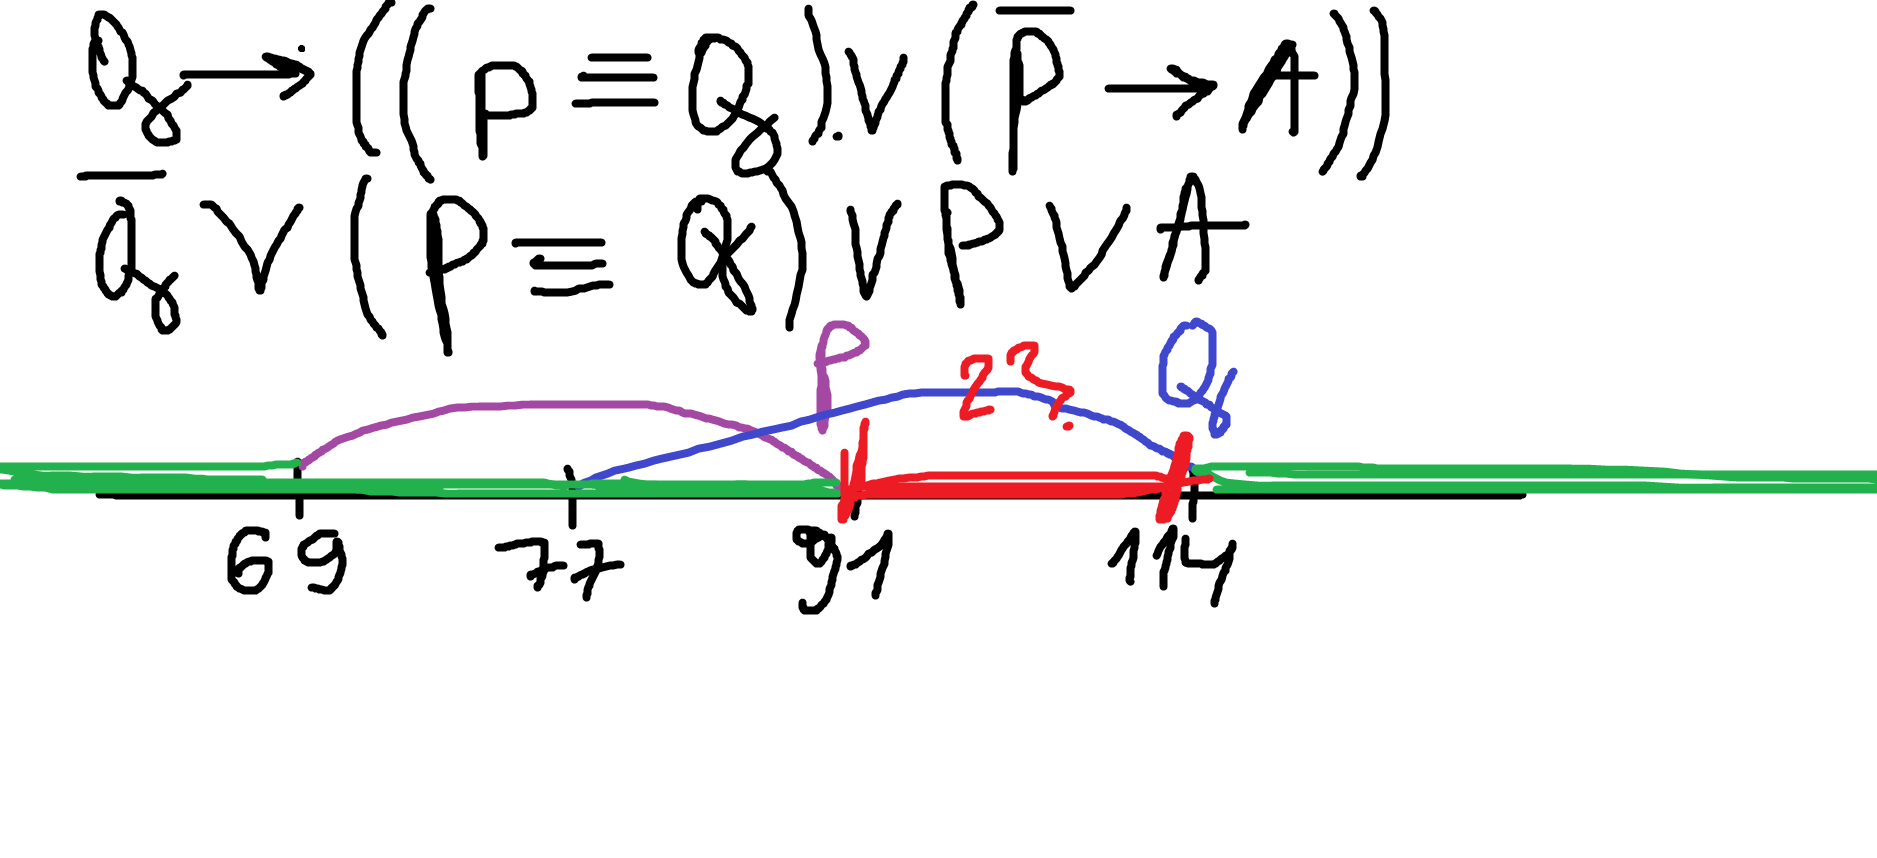 Q → ((P ≡ Q) ∨ (P̅ → A))
Q̅ ∨ (P ≡ Q) ∨ P ∨ A
P 23? Q
69 77 91 114